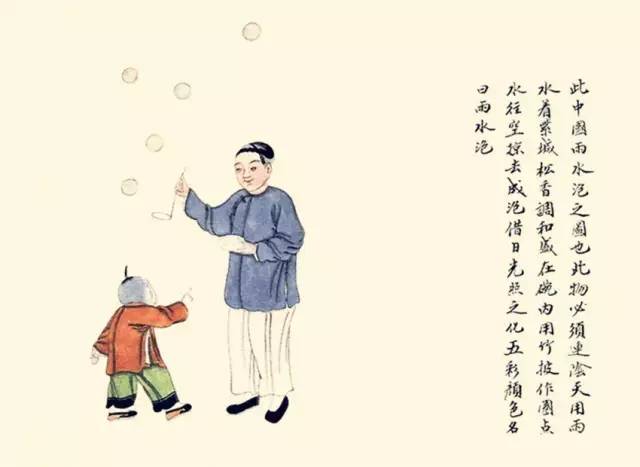 此中國雨水泡之圖也此物必須連陰天用雨
水着紫松香調和盛在碗内用竹披作圈点
水往空掠去成泡借日光照之化五彩顏色名
曰雨水泡